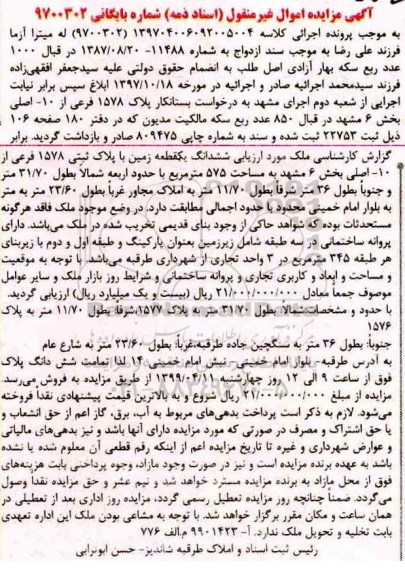 آگهی مزایده اموال غیرمنقول (اسناد ذمه) شماره بایگانی ۹۷۰۰۳۰۲
به موجب پرونده اجرائی کلاسه ۱۳۹۷۰۴۰۰۶۰۹۲۰۰۵۰۰۴ (۹۷۰۰۳۰۲) له میترا آزما
فرزند علی رضا به موجب سند ازدواج به شماره ۱۱۴۸۸- ۱۳۸۷/۰۸/۲۰ در قبال ۱۰۰۰
عدد ربع سکه بهار آزادی اصل طلب به انضمام حقوق دولتی علیه سیدجعفر افقهی‌زاده
فرزند سیدمحمد اجرائیه صادر و اجرائیه در مورخه ۱۳۹۷/۱۰/۱۸ ابلاغ سپس برابر نیابت
اجرایی از شعبه دوم اجرای مشهد به درخواست بستانکار پلاک ۱۵۷۸ فرعی از ۱۰- اصلی
بخش ۶ مشهد در قبال ۸۵۰ عدد ربع سکه مالکیت مدیون که در دفتر ۱۸۰ صفحه ۱۰۶
ذیل ثبت ۲۲۷۵۳ ثبت شده و سند به شماره چاپی ۸۰۹۴۷۵ صادر و بازداشت گردید. برابر
گزارش کارشناسی ملک مورد ارزیابی ششدانگ یکقطعه زمین با پلاک ثبتی ۱۵۷۸ فرعی از
۱۰- اصلی بخش ۶ مشهد به مساحت ۵۷۵ مترمربع با حدود اربعه شمالاً بطول ۳۱/۷۰ متر
و جنوباً بطول ۳۶ متر شرقاً بطول ۱۱/۷۰ متر به املاک مجاور غرباً بطول ۲۳/۶۰ متر به متر
به بلوار امام خمینی محدود با حدود اجمالی مطابقت دارد. در وضع موجود ملک فاقد هرگونه
مستحدثات بوده که شواهد حاکی از وجود بنای قدیمی تخریب شده در ملک می‌باشد. دارای
پروانه ساختمانی در سه طبقه شامل زیرزمین بعنوان پارکینگ و طبقه اول و دوم با زیربنای
هر طبقه ۳۴۵ مترمربع در ۳ واحد تجاری از شهرداری طرقبه می‌باشد. با توجه به موقعیت
و مساحت و ابعاد و کاربری تجاری و پروانه ساختمانی و شرایط روز بازار ملک و سایر عوامل
موصوف جمعا معادل ۲۱/۰۰۰/۰۰۰/۰۰۰ ریال (بیست و یک میلیارد ریال) ارزیابی گردید.
با حدود و مشخصات:شمالا: بطول ۳۱/۷۰ متر به پلاک ۱۵۷۷،شرقا: بطول ۱۱/۷۰ متر به پلاک
۱۵۷۶
جنوبا: بطول ۳۶ متر به سنگچین جاده طرقبه،غربا: بطول ۲۳/۶۰ متر به شارع عام
به آدرس طرقبه- بلوار امام خمینی- نبش امام خمینی ۱۴ لذا تمامت شش دانگ پلاک
فوق از ساعت ۹ الی ۱۲ روز چهارشنبه ۱۳۹۹/۰۶/۱۱ از طریق مزایده به فروش می‌رسد.
مزایده از مبلغ ۲۱/۰۰۰/۰۰۰/۰۰۰ ریال شروع و به بالاترین قیمت پیشنهادی نقدا فروخته
می‌شود. لازم به ذکر است پرداخت بدهی‌های مربوط به آب، برق، گاز اعم از حق انشعاب و
یا حق اشتراک و مصرف در صورتی که مورد مزایده دارای آنها باشد و نیز بدهی‌های مالیاتی
و عوارض شهرداری و غیره تا تاریخ مزایده اعم از اینکه رقم قطعی آن معلوم شده یا نشده
باشد به عهده برنده مزایده است و نیز در صورت وجود مازاد، وجوه پرداختی بابت هزینه‌های
فوق از محل مازاد به برنده مزایده مسترد خواهد شد و نیم عشر و حق مزایده نقداً وصول
می‌گردد. ضمناً چنانچه روز مزایده تعطیل رسمی گردد، مزایده روز اداری بعد از تعطیلی در
همان ساعت و مکان مقرر برگزار خواهد شد. با توجه به مشاعی بودن ملک این اداره تعهدی
بابت تخلیه و تحویل ملک ندارد. آ- ۹۹۰۱۴۲۳ م.الف ۷۷۶
رئیس ثبت اسناد و املاک طرقبه شاندیز- حسن ابوترابی